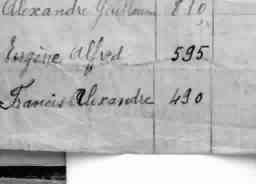 Alexandre Guillaume 810
Eugène Alfred 595
Francis Alexandre 490